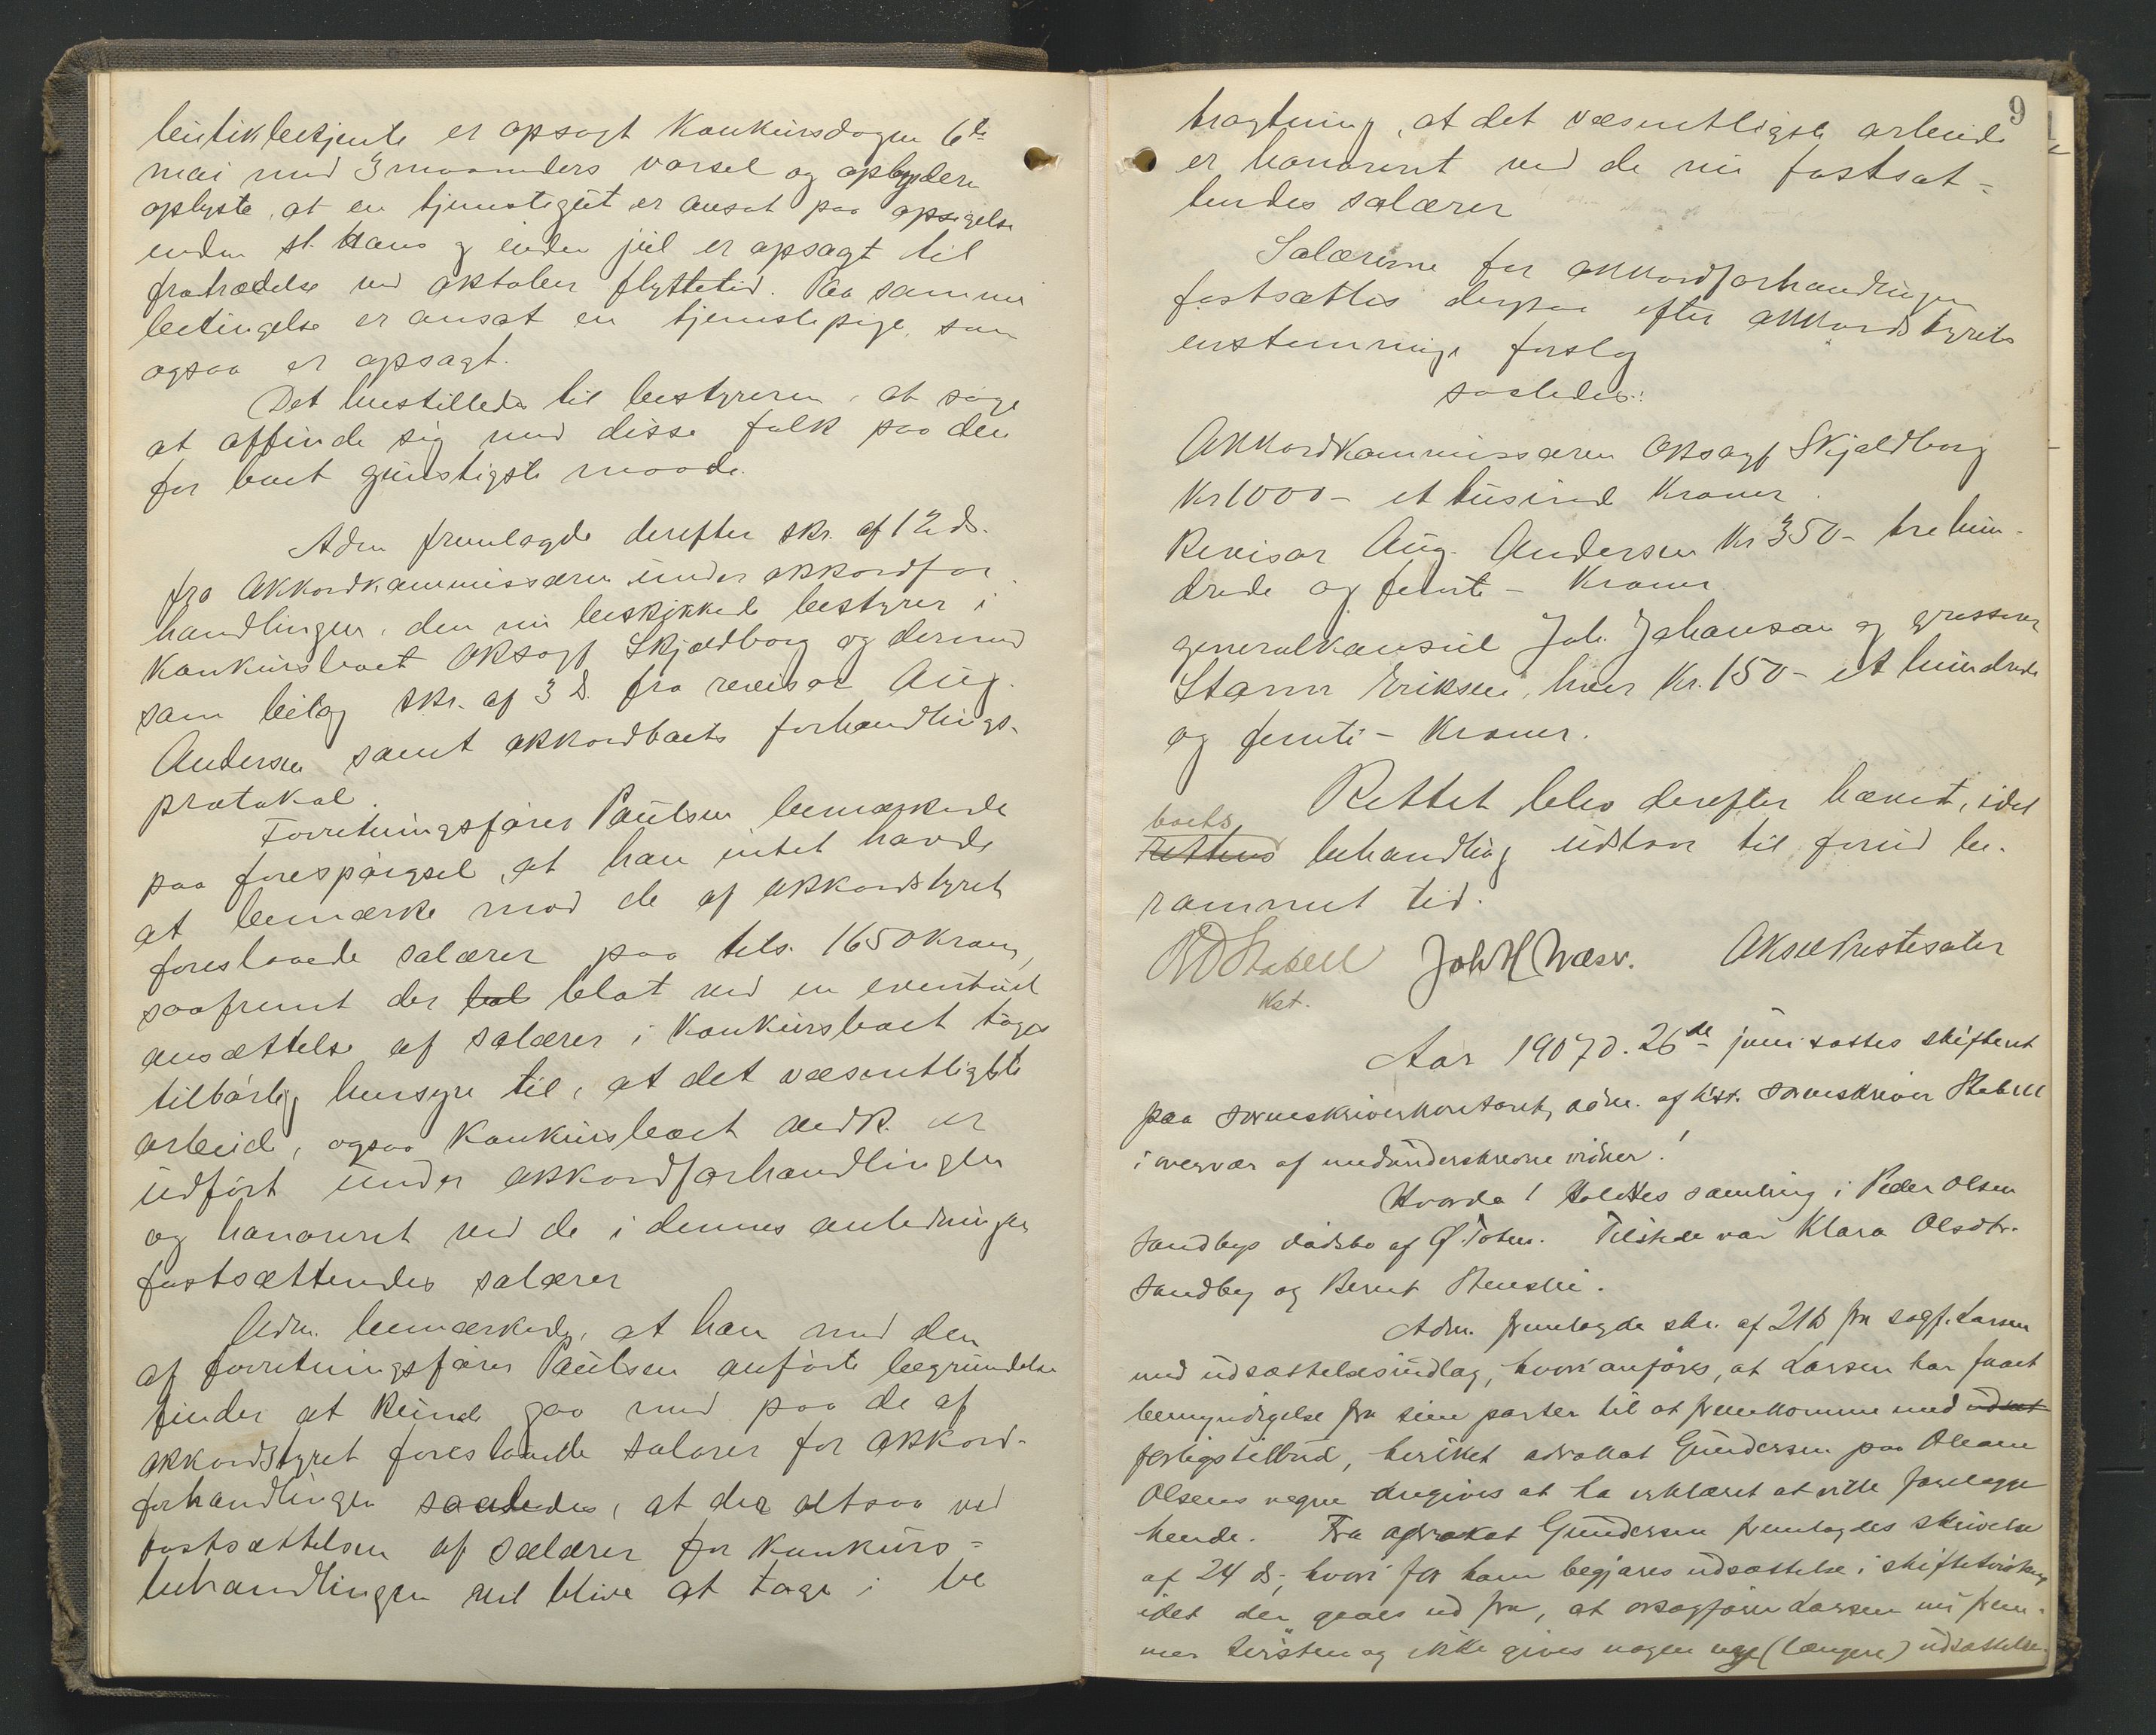 butikbetjente er opsagt konkursdagen 6te
mai med 3 maaneders varsel og opbyderen
oplyste, at en tjenestegut er ansat paa opsigelse
inden st. Hans og inden jul er opsagt til
fratrædelse ved oktober flyttetid. Paa samme
betingelse er ansat en tjenestepige, som
ogsaa er opsagt.
Det henstilledes til bestyreren, at søge
at affinde sig med disse folk paa den
for boet gunstigste maade.
Adm fremlagde derefter skr. af 12 ds.
fra akkordkommissæren under akkordfor
handlingen, den nu beskikkede bestyrer i
konkursboet oksagf Skjaldborg og dermed
som bilag skr. af 3 ds. fra revisor Aug.
Andersen samt akkordboets forhandlings-
protokol.
Forretningsfører Paulsen bemærkede
paa forespørgsel, at han intet havde
at bemærke mod de af akkordstyret
foreslaaede salærer paa tils. 1650 kroner,
saafremt der bol blot ved en eventuel
ansættelse af salærer i konkursboet toges
tilbørlig hensyn til, at det væsentligste
arbeid, ogsaa konkursboet vedk. er
udført under akkordforhandlingen
og honoreret ved de i dennes anledning
fastsættendes salærer
Adm. bemærkede, at han med den
af forretningsfører Paulsen anførte begrundelse
finder at kunde gaa med paa de af
akkordstyret foreslaaede salærer for akkord-
forhandlingen saaledes, at der altsaa ved
fastsættelsen af salærer for konkurs=
behandlingen vil blive at tage i be
9
tragtning, at det væsentligste arbeide
er honoreret ved de nu fastsat=
tendes salærer
Salærerne for akkordforhandlingen
fastsættes derpaa efter akkordstyrets
enstemmige forslag
saaledes:
Akkordkommissæren oksagf Skjaldborg
Kr 1000 - et tusind kroner.
Revisor Aug. Andersen Kr 350 - tre hun-
drede og femti - kroner
generalkonsul Joh. Johanson og grosserer
Stamr Eriksen, hver Kr. 150 - et hundrede
og femti - kroner.
Rettet blev derefter hævet, idet
boets
rettens behandling udstaar til forud be-
rammet tid.
Stabell Joh H Næss. Aksel
Kst.
Aar 1907 d. 26de juni sattes skifteret
paa sorenskriverkontoret, adm. af kst. sorenskriver Stabell
i overvær af medunderskrevne vidner!
Hvorda! Holdtes samling i Peder Olsen
Sandbys dødsbo af Ø. Toten. Tilstede var Klara Olsdtr.
Sandby og Bernt Stenslie.
Adm. fremlagde skr. af 21 ds fra sagf. Larsen
med udsættelsesindlæg, hvori anføres, at Larsen har faaet
bemyndigelse fra sine parter til at fremkomme med udsæt
forligstilbud, hvilket advokat Gundersen paa Oleane
Olsens vegne angives at ha erklæret at ville forelægge
hende. Fra advokat Gundersen fremlagdes skrivelse
af 24 ds., hvori for ham begjæres udsættelse i skiftetvisten,
idet der gaaes ud fra, at oksagfører Larsen nu frem-
mer tvisten og ikke gives nogen ny (længere) udsættelse.